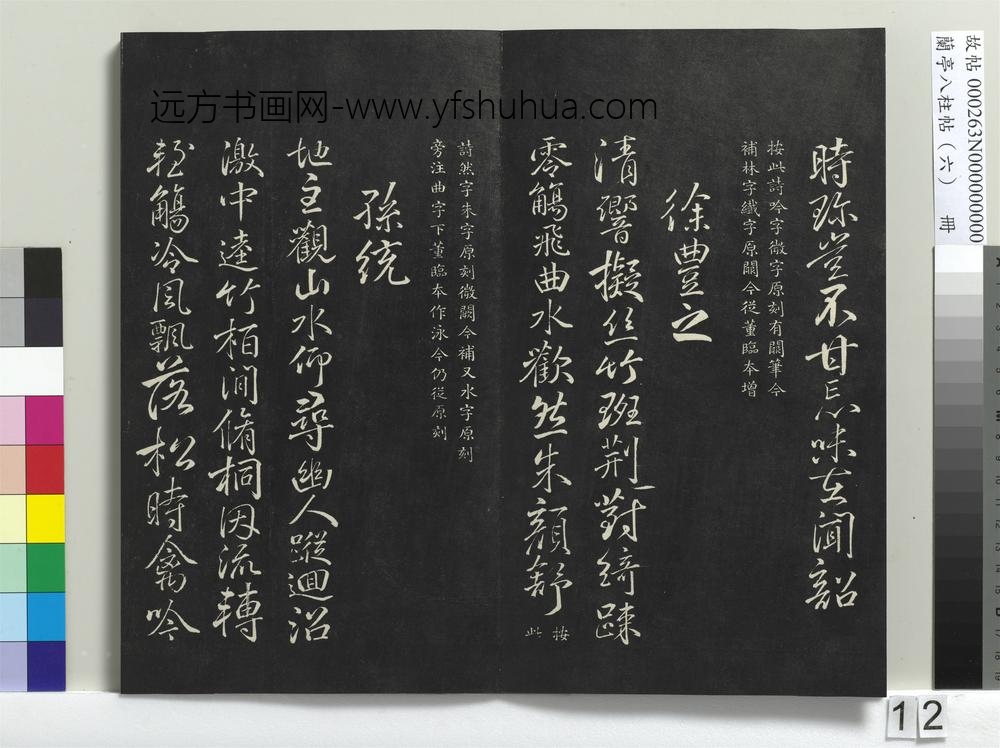 時珍豈不甘忘味在聞韶
按此詩吟字微字原刻有闕筆今
補林字纖字原闕今從董臨本增
徐豐之
清響擬絲竹班荆對綺踈
零觴飛曲水歡然朱顏舒
按此
詩然字朱字原刻微闕今補又水字原刻
旁注曲字下董臨本作泳今仍從原刻
孫統
地主觀山水仰尋幽人蹤迴沼
激中逵竹栢澗脩桐因流轉
輕觴冷風飄落松時禽吟
远方书画网-www.yfshuhua.com
故帖 000263N000000000
蘭亭八柱帖（六） 冊
12